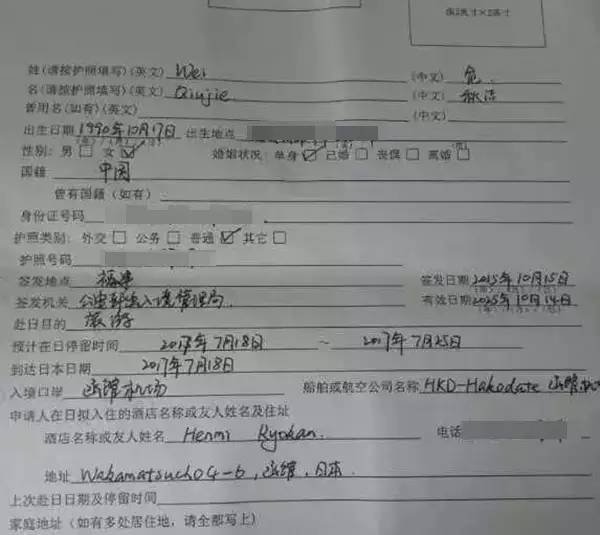 像2英寸×2英寸
姓(请按护照填写)(英文) Wei (中文) 危
名(请按护照填写)(英文) Qiujie (中文) 秋洁
曾用名(如有)(英文) (中文)
出生日期 1990年10月17日 出生地点
性别: 男□ 女☑ 婚姻状况: 单身☑ 已婚□ 丧偶□ 离婚□
国籍 中国
曾有国籍 (如有)
身份证号码
护照类别: 外交□ 公务□ 普通☑ 其它□
护照号码
签发地点 福建 签发日期 2015年10月15日
签发机关 公安部出入境管理局 有效日期 2025年10月14日
赴日目的 旅游
预计在日停留时间 2017年7月18日 ~ 2017年7月25日
到达日本日期 2017年7月18日
入境口岸 函馆机场 船舶或航空公司名称 HKD-Hakodate 函馆机
申请人在日拟入住的酒店名称或友人姓名及住址
酒店名称或友人姓名 Henmi Ryokan. 电话
地址 Wakamatsucho 4-6, 函馆, 日本
上次赴日日期及停留时间
家庭地址 (如有多处居住地，请全部写上)